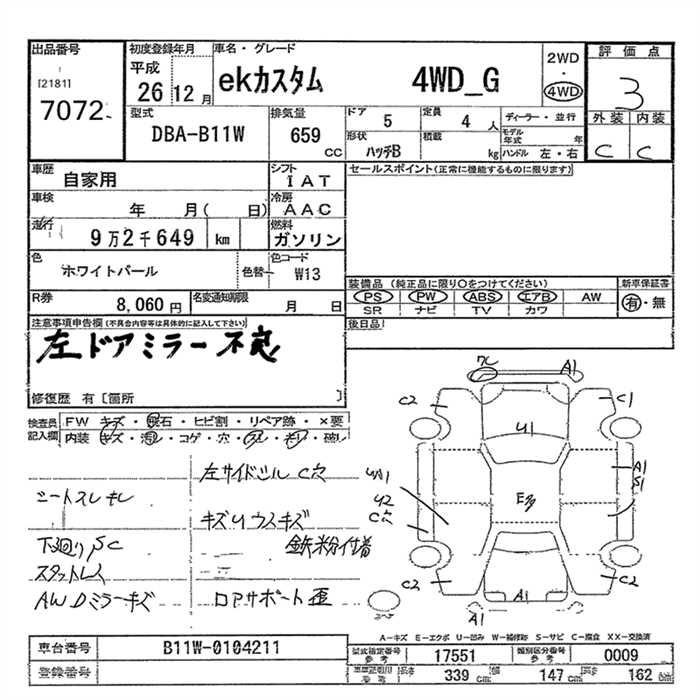 出品番号
[2181]
7072
初度登録年月
平成
26 12 月
車名・グレード
ekカスタム 4WD_G
2WD
・
4WD
評価点
3
外装 内装
C C
型式
DBA-B11W
排気量
659 CC
ドア 5
定員 4 人
形状 ハッチB
積載 kg
ディーラー・並行
モデル年式 年
ハンドル 左・右
車歴 自家用
シフト IAT
セールスポイント(正常に機能するものに限ります)
車検 年 月( 日)
冷房 AAC
走行 9万2千649 km
燃料 ガソリン
色 ホワイトパール
色替
色コード W13
装備品 (純正品に限り○をつけてください)
PS PW ABS エアB AW
SR ナビ TV カワ
新車保証書
有・無
R券 8,060 円
名変通知期限 月 日
後日品
注意事項申告欄(不具合内容等は具体的に記入して下さい)
左ドアミラー不良
修復歴 有〔箇所 〕
検査員記入欄
FW キズ・飛石・ヒビ割・リペア跡・×要
内装 キズ・汚レ・コゲ・穴・スレ・キレ・破レ
左サイドシル C穴
シートスレ キレ
キズ U ウスキズ
下廻り SC
鉄粉付着
スタットレス
AWDミラーキズ
ロアサポート歪
A1
C2 C1
U1
A1
S1
U2
C穴
C2 C2
A1
A1
A-キズ E-エクボ U-凹み W-補修跡 S-サビ C-腐食 XX-交換済
車台番号 B11W-0104211
型式指定番号 参考 17551
類別区分番号 参考 0009
登録番号
車両測定記入 参考
長さ 339 cm 幅 147 cm 高さ 162 cm